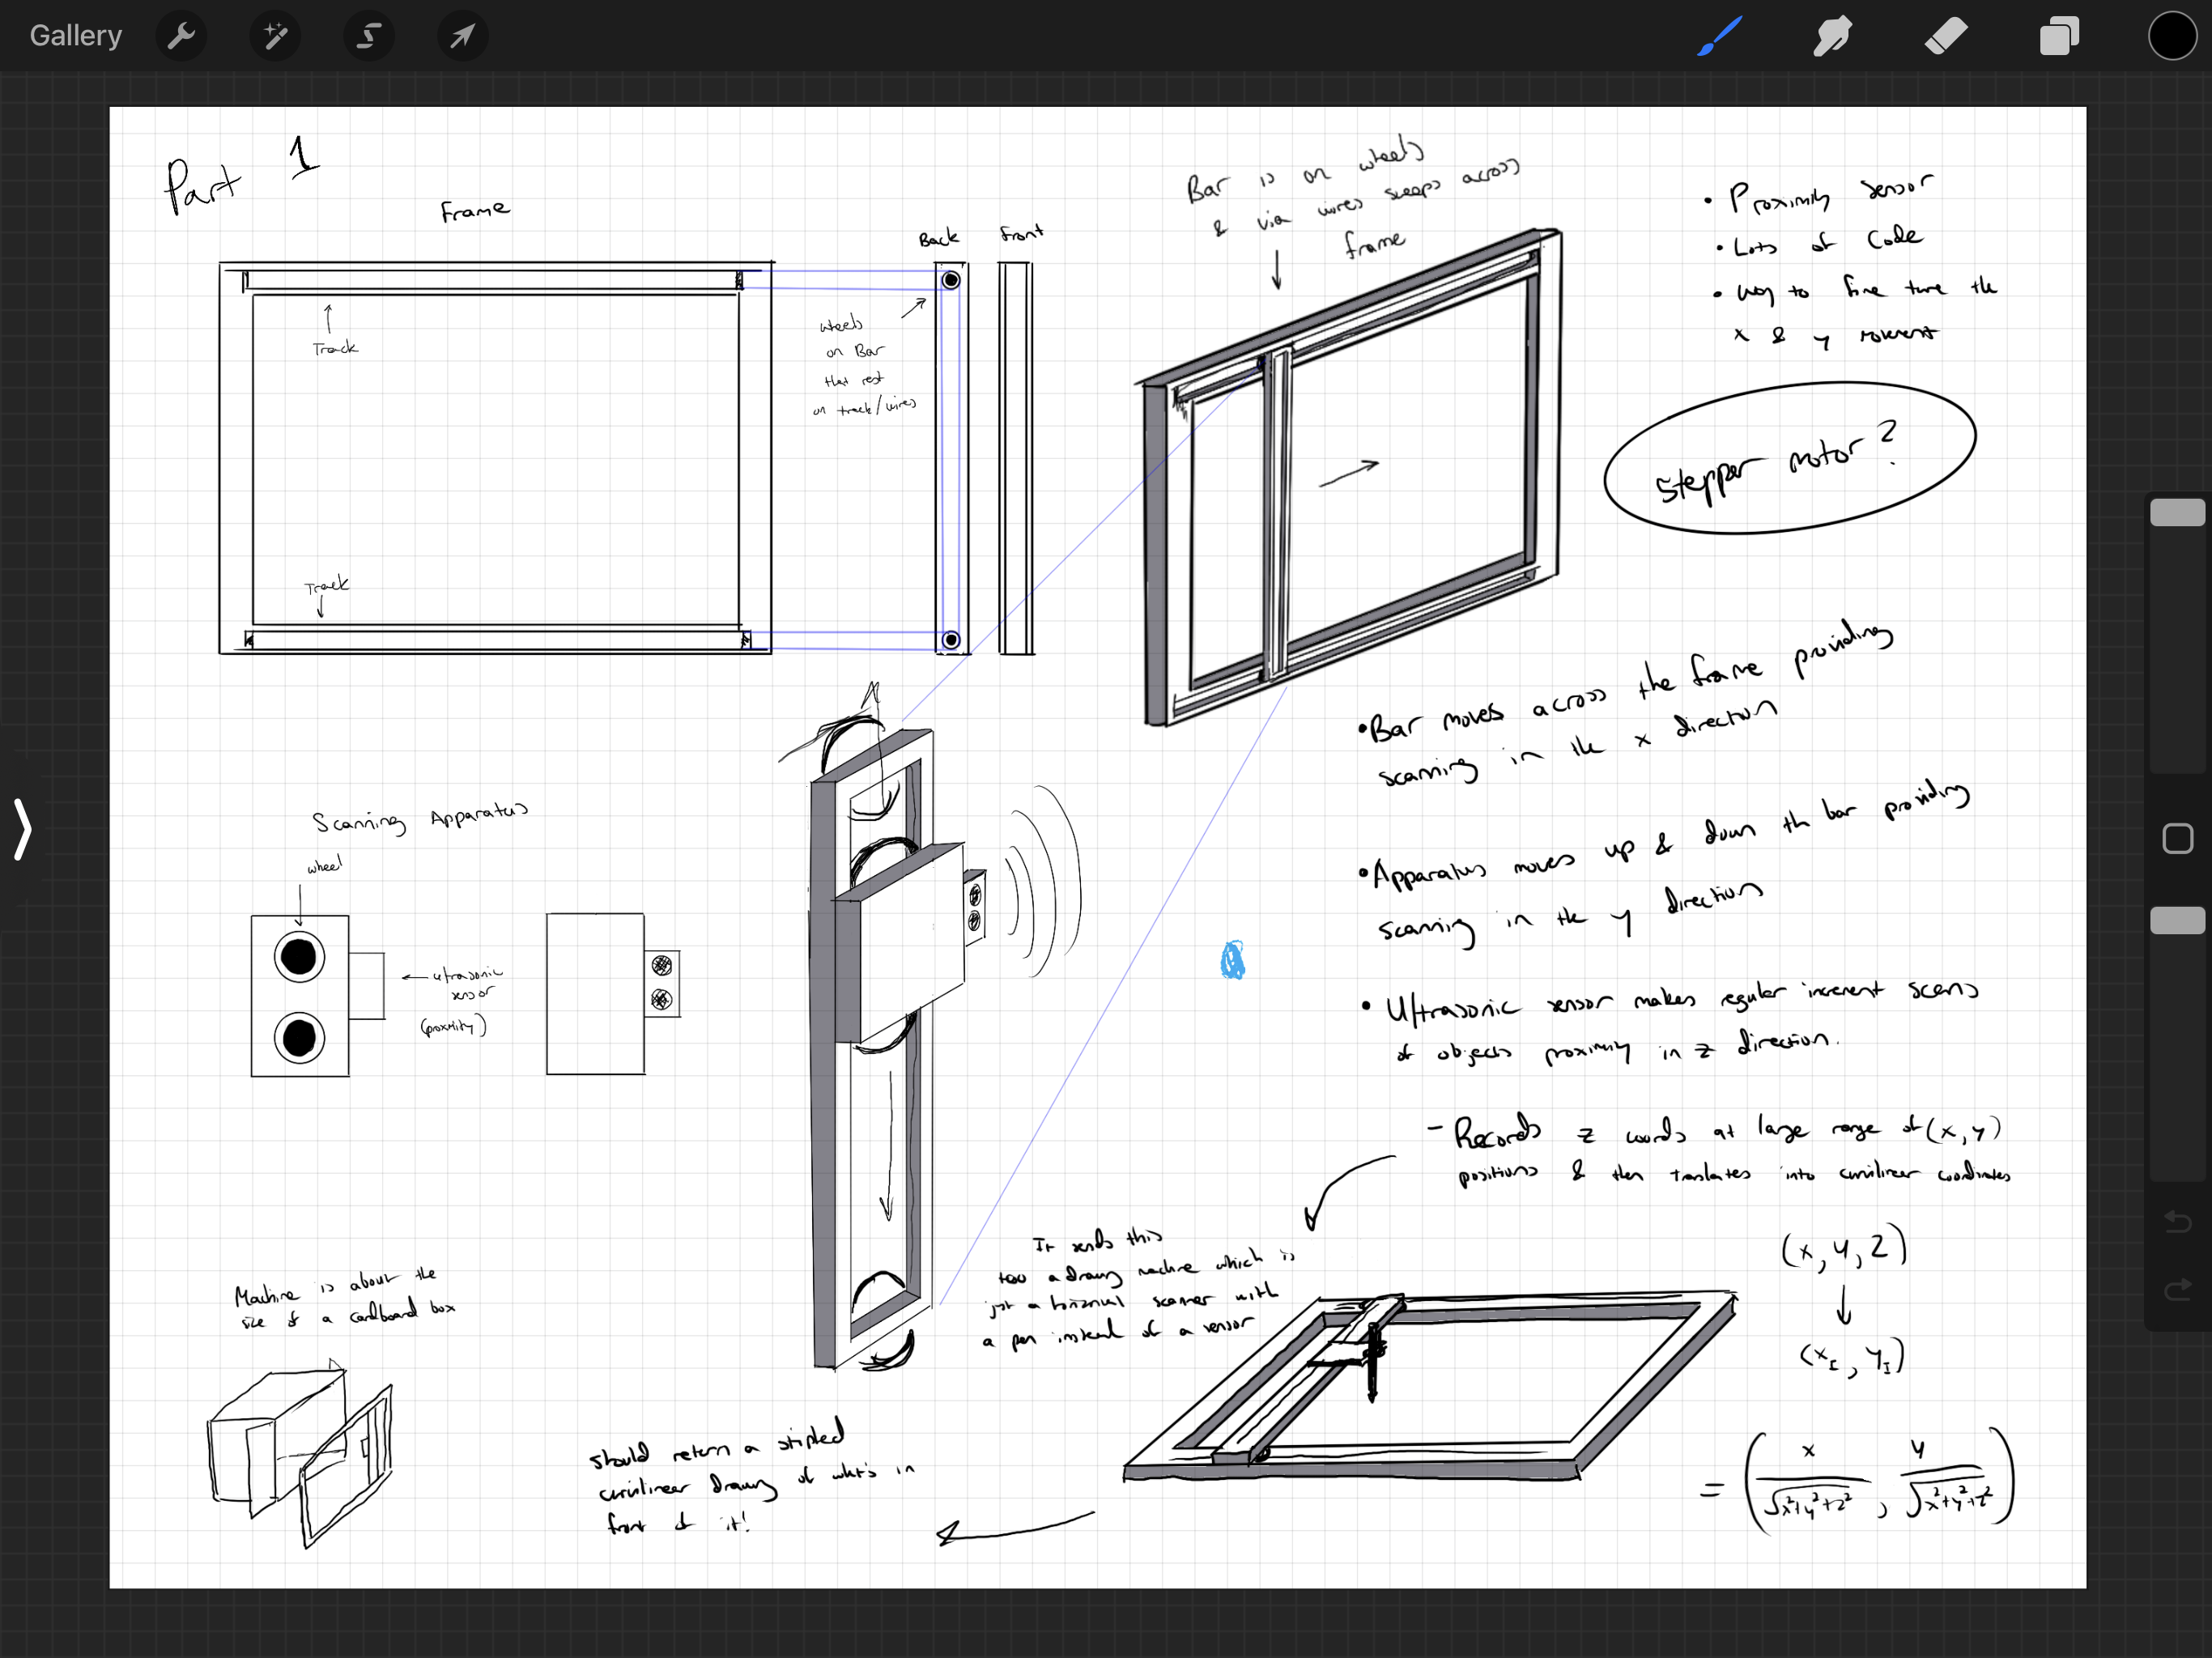 Gallery
Part 1
Frame
Track
Track
Back
Front
wheels
on Bar
that rest
on track/wires
Bar is on wheels
& via wires sweeps across
frame
• Proximity sensor
• Lots of Code
• way to fine tune the
x & y movement
Stepper motor?
• Bar moves across the frame providing
scanning in the x direction
• Apparatus moves up & down the bar providing
scanning in the y direction
• Ultrasonic sensor makes regular increment scans
of objects proximity in z direction.
- Records z coords at large range of (x, y)
positions & then translates into curvilinear coordinates
(x, y, z)
(x_I, y_I)
= (x/√x²+y²+z², y/√x²+y²+z²)
Scanning Apparatus
wheel
ultrasonic
sensor
(proximity)
It sends this
too a drawing machine which is
just a horizontal scanner with
a pen instead of a sensor
Machine is about the
size of a cardboard box
should return a stipled
curvilinear drawing of what's in
front of it!